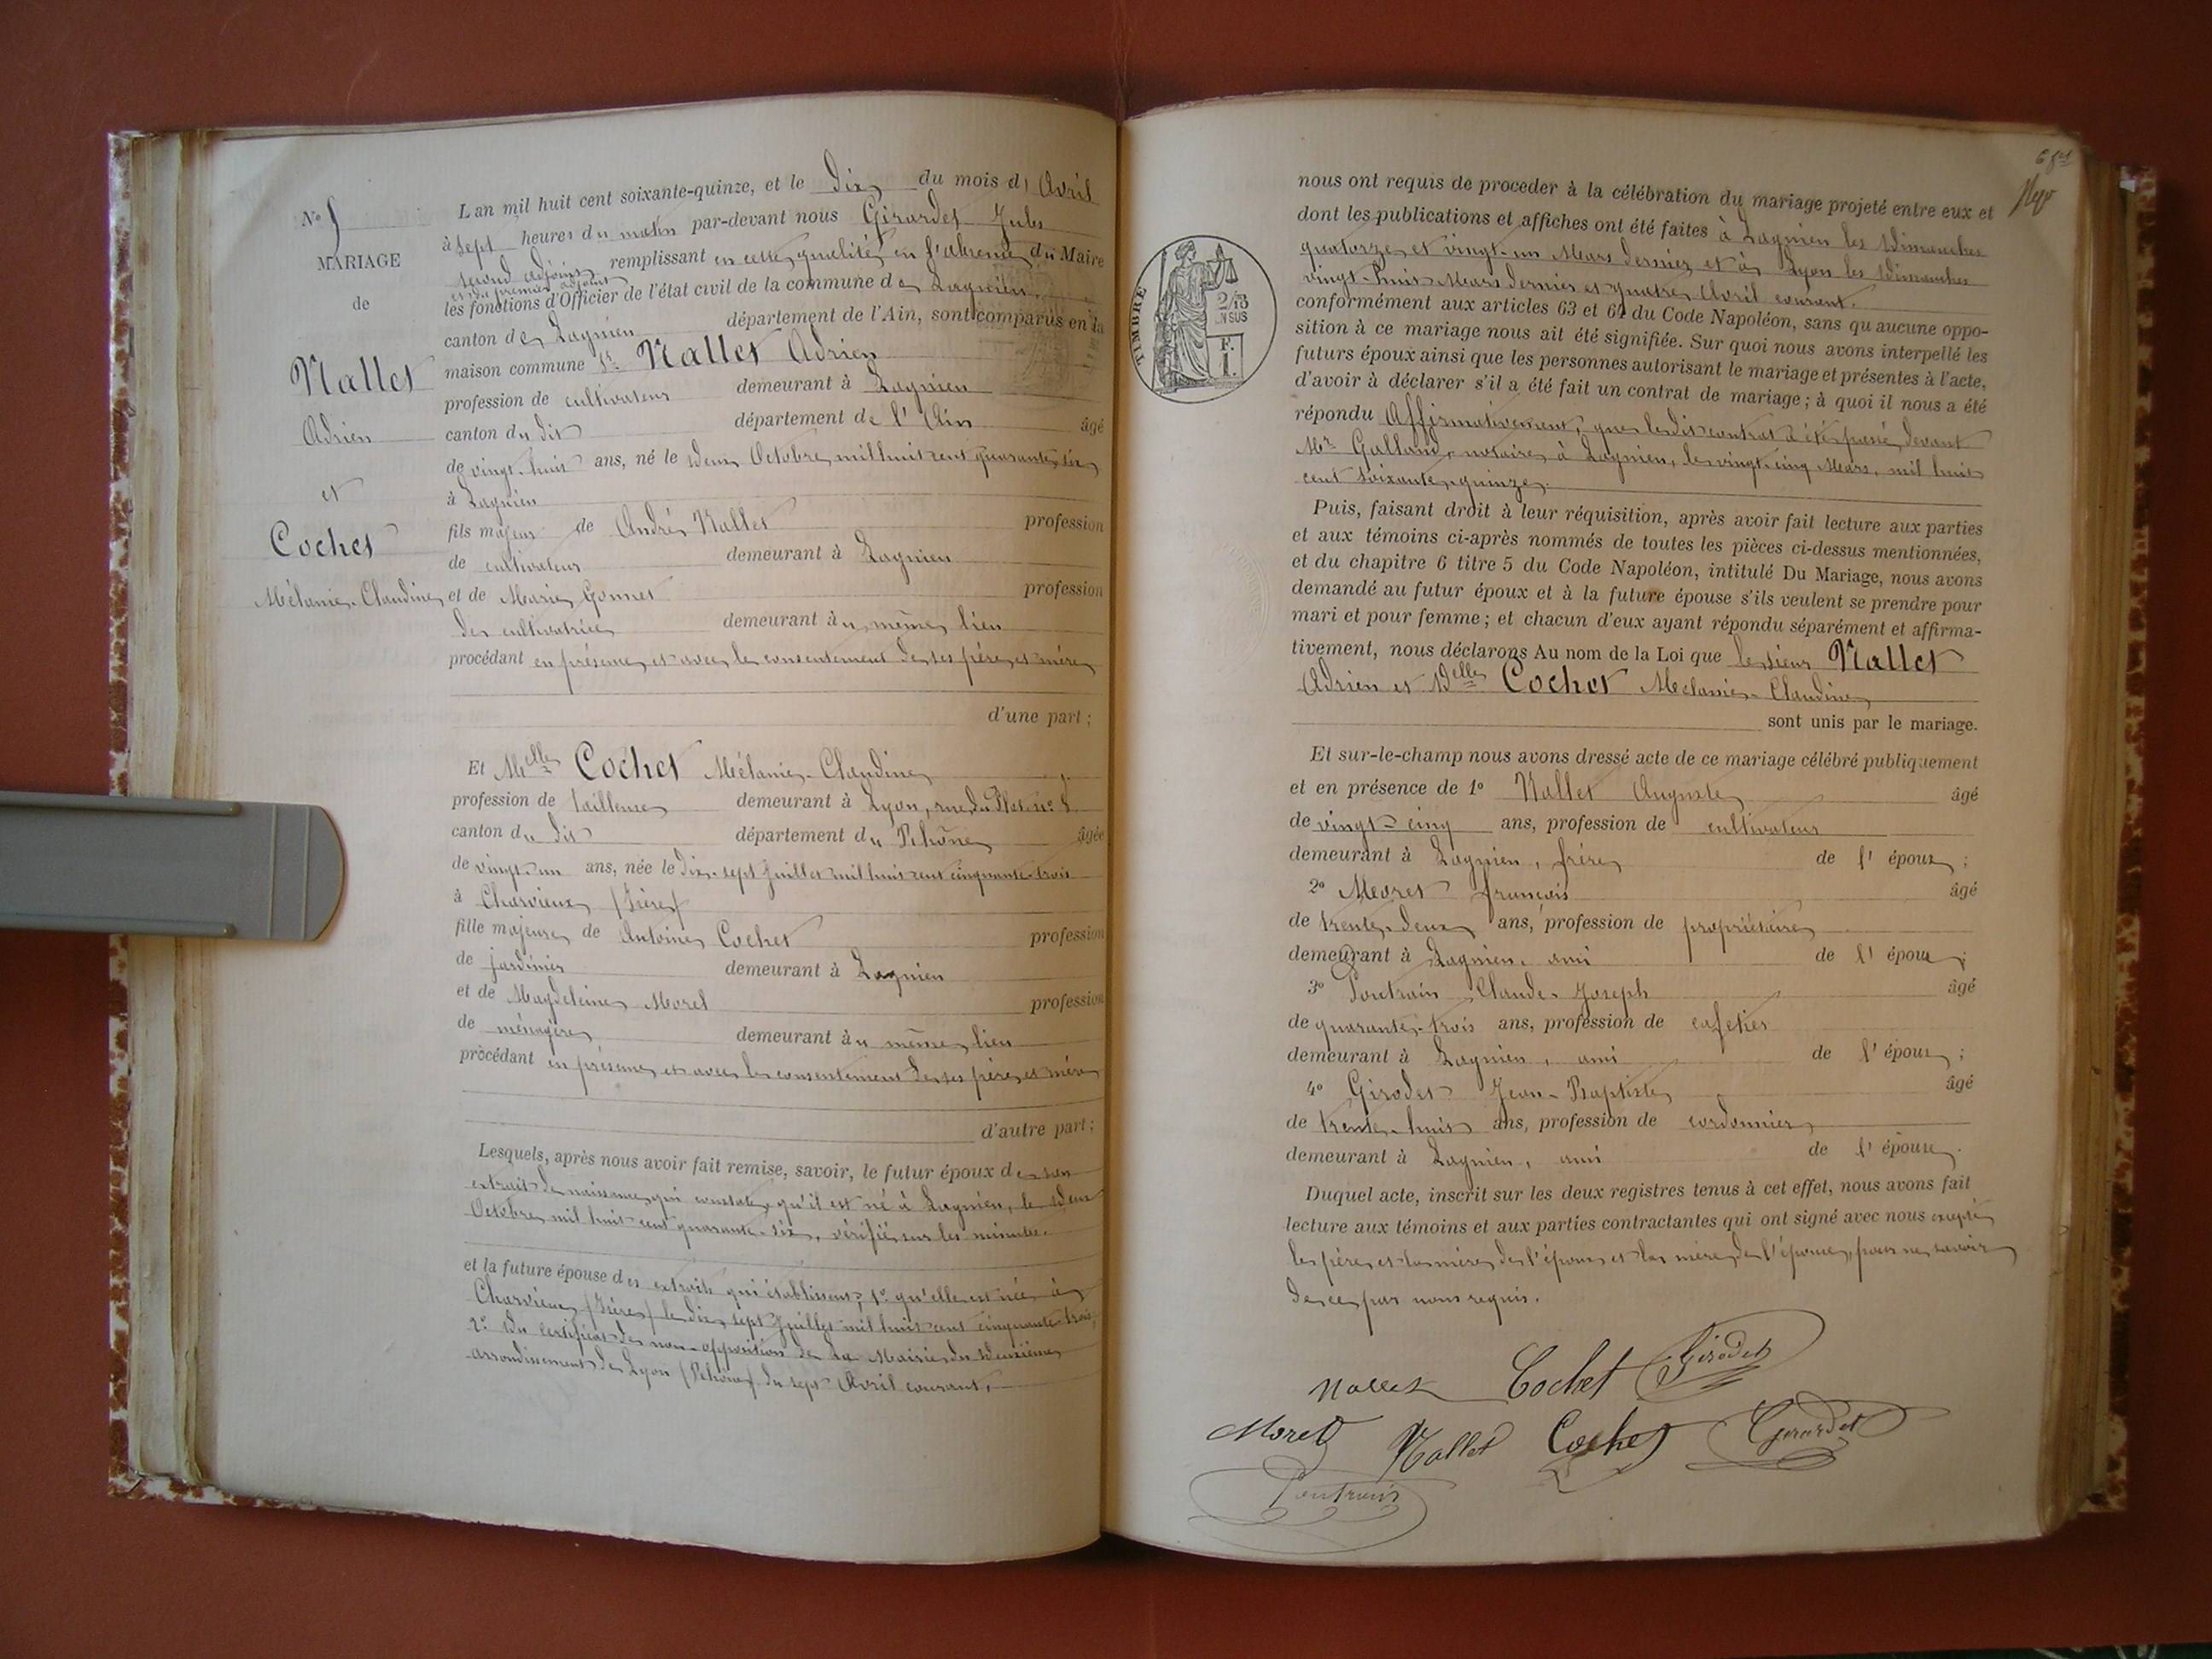 L'an mil huit cent soixante-quinze, et le dix du mois d'Avril
à sept heures du matin par-devant nous Girardet Jules
second adjoint remplissant en cette qualité, en l'absence du Maire
et du premier adjoint
les fonctions d'Officier de l'état civil de la commune de Lagnieu,
canton de Lagnieu département de l'Ain, sont comparus en la
maison commune Sr Nallet Adrien
profession de cultivateur demeurant à Lagnieu
canton du dit département de l'Ain âgé
de vingt-huit ans, né le deux Octobre mil huit cent quarante-six
à Lagnieu
fils majeur de André Nallet profession
de cultivateur demeurant à Lagnieu
et de Marie Gonnet profession
de cultivatrice demeurant au même lieu
procédant en présence et avec le consentement de ses père et mère
d'une part ;
Et Melle Cochet Mélanie-Claudine
profession de tailleuse demeurant à Lyon, rue du Plat, no
canton du dit département du Rhône âgée
de vingt-un ans, née le dix-sept Juillet mil huit cent cinquante-trois
à Charvieux (Isère)
fille majeure de Antoine Cochet profession
de jardinier demeurant à Lagnieu
et de Magdeleine Morel profession
de ménagère demeurant au même lieu
procédant en présence et avec le consentement de ses père et mère
d'autre part ;
Lesquels, après nous avoir fait remise, savoir, le futur époux de son
extrait de naissance, qui constate qu'il est né à Lagnieu, le deux
Octobre mil huit cent quarante-six, vérifié sur les minutes.
et la future épouse des extraits qui établissent : 1o qu'elle est née à
Charvieux (Isère) le dix-sept Juillet mil huit cent cinquante-trois,
2o du certificat de non-opposition de la Mairie du deuxième
arrondissement de Lyon (Rhône) du sept Avril courant.
No
MARIAGE
de
Nallet
Adrien
et
Cochet
Mélanie-Claudine
nous ont requis de proceder à la célébration du mariage projeté entre eux et
dont les publications et affiches ont été faites à Lagnieu les Dimanches
quatorze et vingt-un Mars dernier et à Lyon les Dimanches
vingt-huit Mars dernier et quatre Avril courant.
conformément aux articles 63 et 64 du Code Napoléon, sans qu'aucune oppo-
sition à ce mariage nous ait été signifiée. Sur quoi nous avons interpellé les
futurs époux ainsi que les personnes autorisant le mariage et présentes à l'acte,
d'avoir à déclarer s'il a été fait un contrat de mariage ; à quoi il nous a été
répondu Affirmativement, que le dit contrat a été passé devant
Me Galland, notaire à Lagnieu, le vingt-cinq Mars, mil huit
cent soixante-quinze.
Puis, faisant droit à leur réquisition, après avoir fait lecture aux parties
et aux témoins ci-après nommés de toutes les pièces ci-dessus mentionnées,
et du chapitre 6 titre 5 du Code Napoléon, intitulé Du Mariage, nous avons
demandé au futur époux et à la future épouse s'ils veulent se prendre pour
mari et pour femme ; et chacun d'eux ayant répondu séparément et affirma-
tivement, nous déclarons Au nom de la Loi que le sieur Nallet
Adrien et Delle Cochet Mélanie-Claudine
sont unis par le mariage.
Et sur-le-champ nous avons dressé acte de ce mariage célébré publiquement
et en présence de 1o Nallet Auguste âgé
de vingt-cinq ans, profession de cultivateur
demeurant à Lagnieu, frère de l'époux ;
2o Moret françois âgé
de trente-deux ans, profession de propriétaire
demeurant à Lagnieu, ami de l'époux ;
3o Poutrain Claude-Joseph âgé
de quarante-trois ans, profession de cafetier
demeurant à Lagnieu, ami de l'époux ;
4o Girodet Jean-Baptiste âgé
de trente-huit ans, profession de cordonnier
demeurant à Lagnieu, ami de l'époux.
Duquel acte, inscrit sur les deux registres tenus à cet effet, nous avons fait
lecture aux témoins et aux parties contractantes qui ont signé avec nous excepté
le père et la mère de l'époux et la mère de l'épouse, pour ne savoir
de ce par nous requis.
Nallet Cochet Girodet
Moret Nallet Cochet Girardet
Poutrain
TIMBRE
2/10
EN SUS
F.
1.